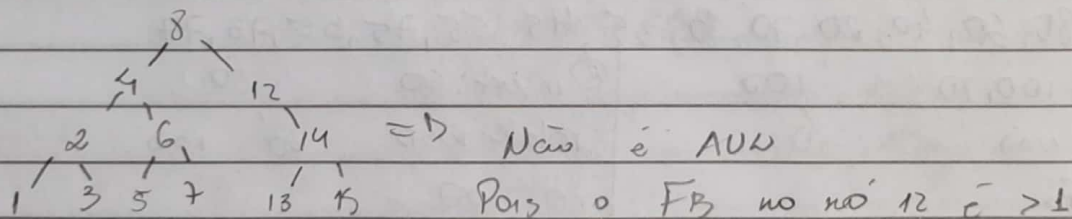 8
4 12
2 6 14 => Não é AVL
1 3 5 7 13 15 Pois o FB no nó 12 é >1